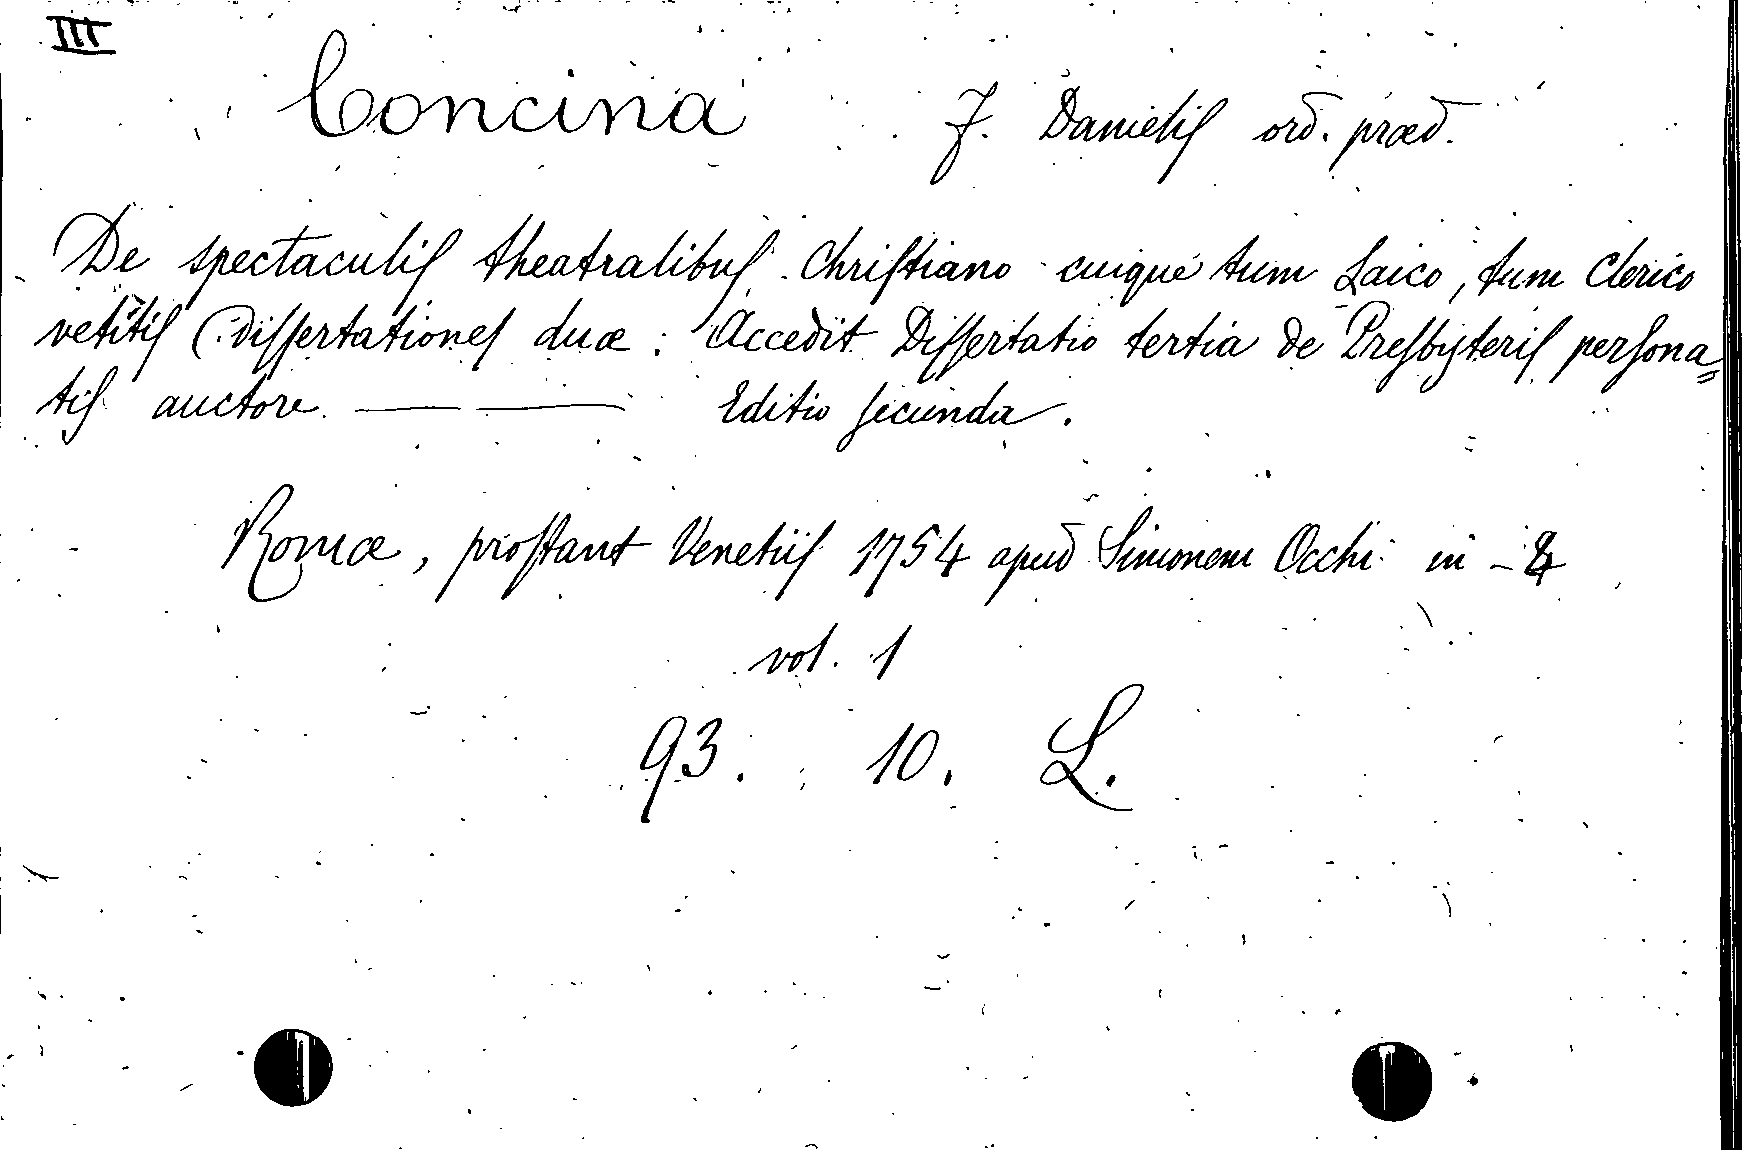 III
Concina F. Danielis ord. præd.
De spectaculis theatralibus Christiano cuique tum Laico, tum Clerico
vetitis Dissertationes duæ: Accedit Dissertatio tertia de Presbyteris persona=
tis auctore — — Editio secunda.
Romæ, prostant Venetiis 1754 apud Simonem Occhi in - 4
vol. 1
93. 10. L.